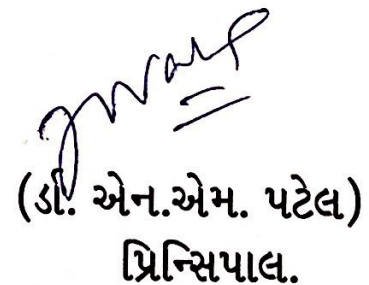 (ડૉ. એન.એમ. પટેલ)
પ્રિન્સિપાલ.